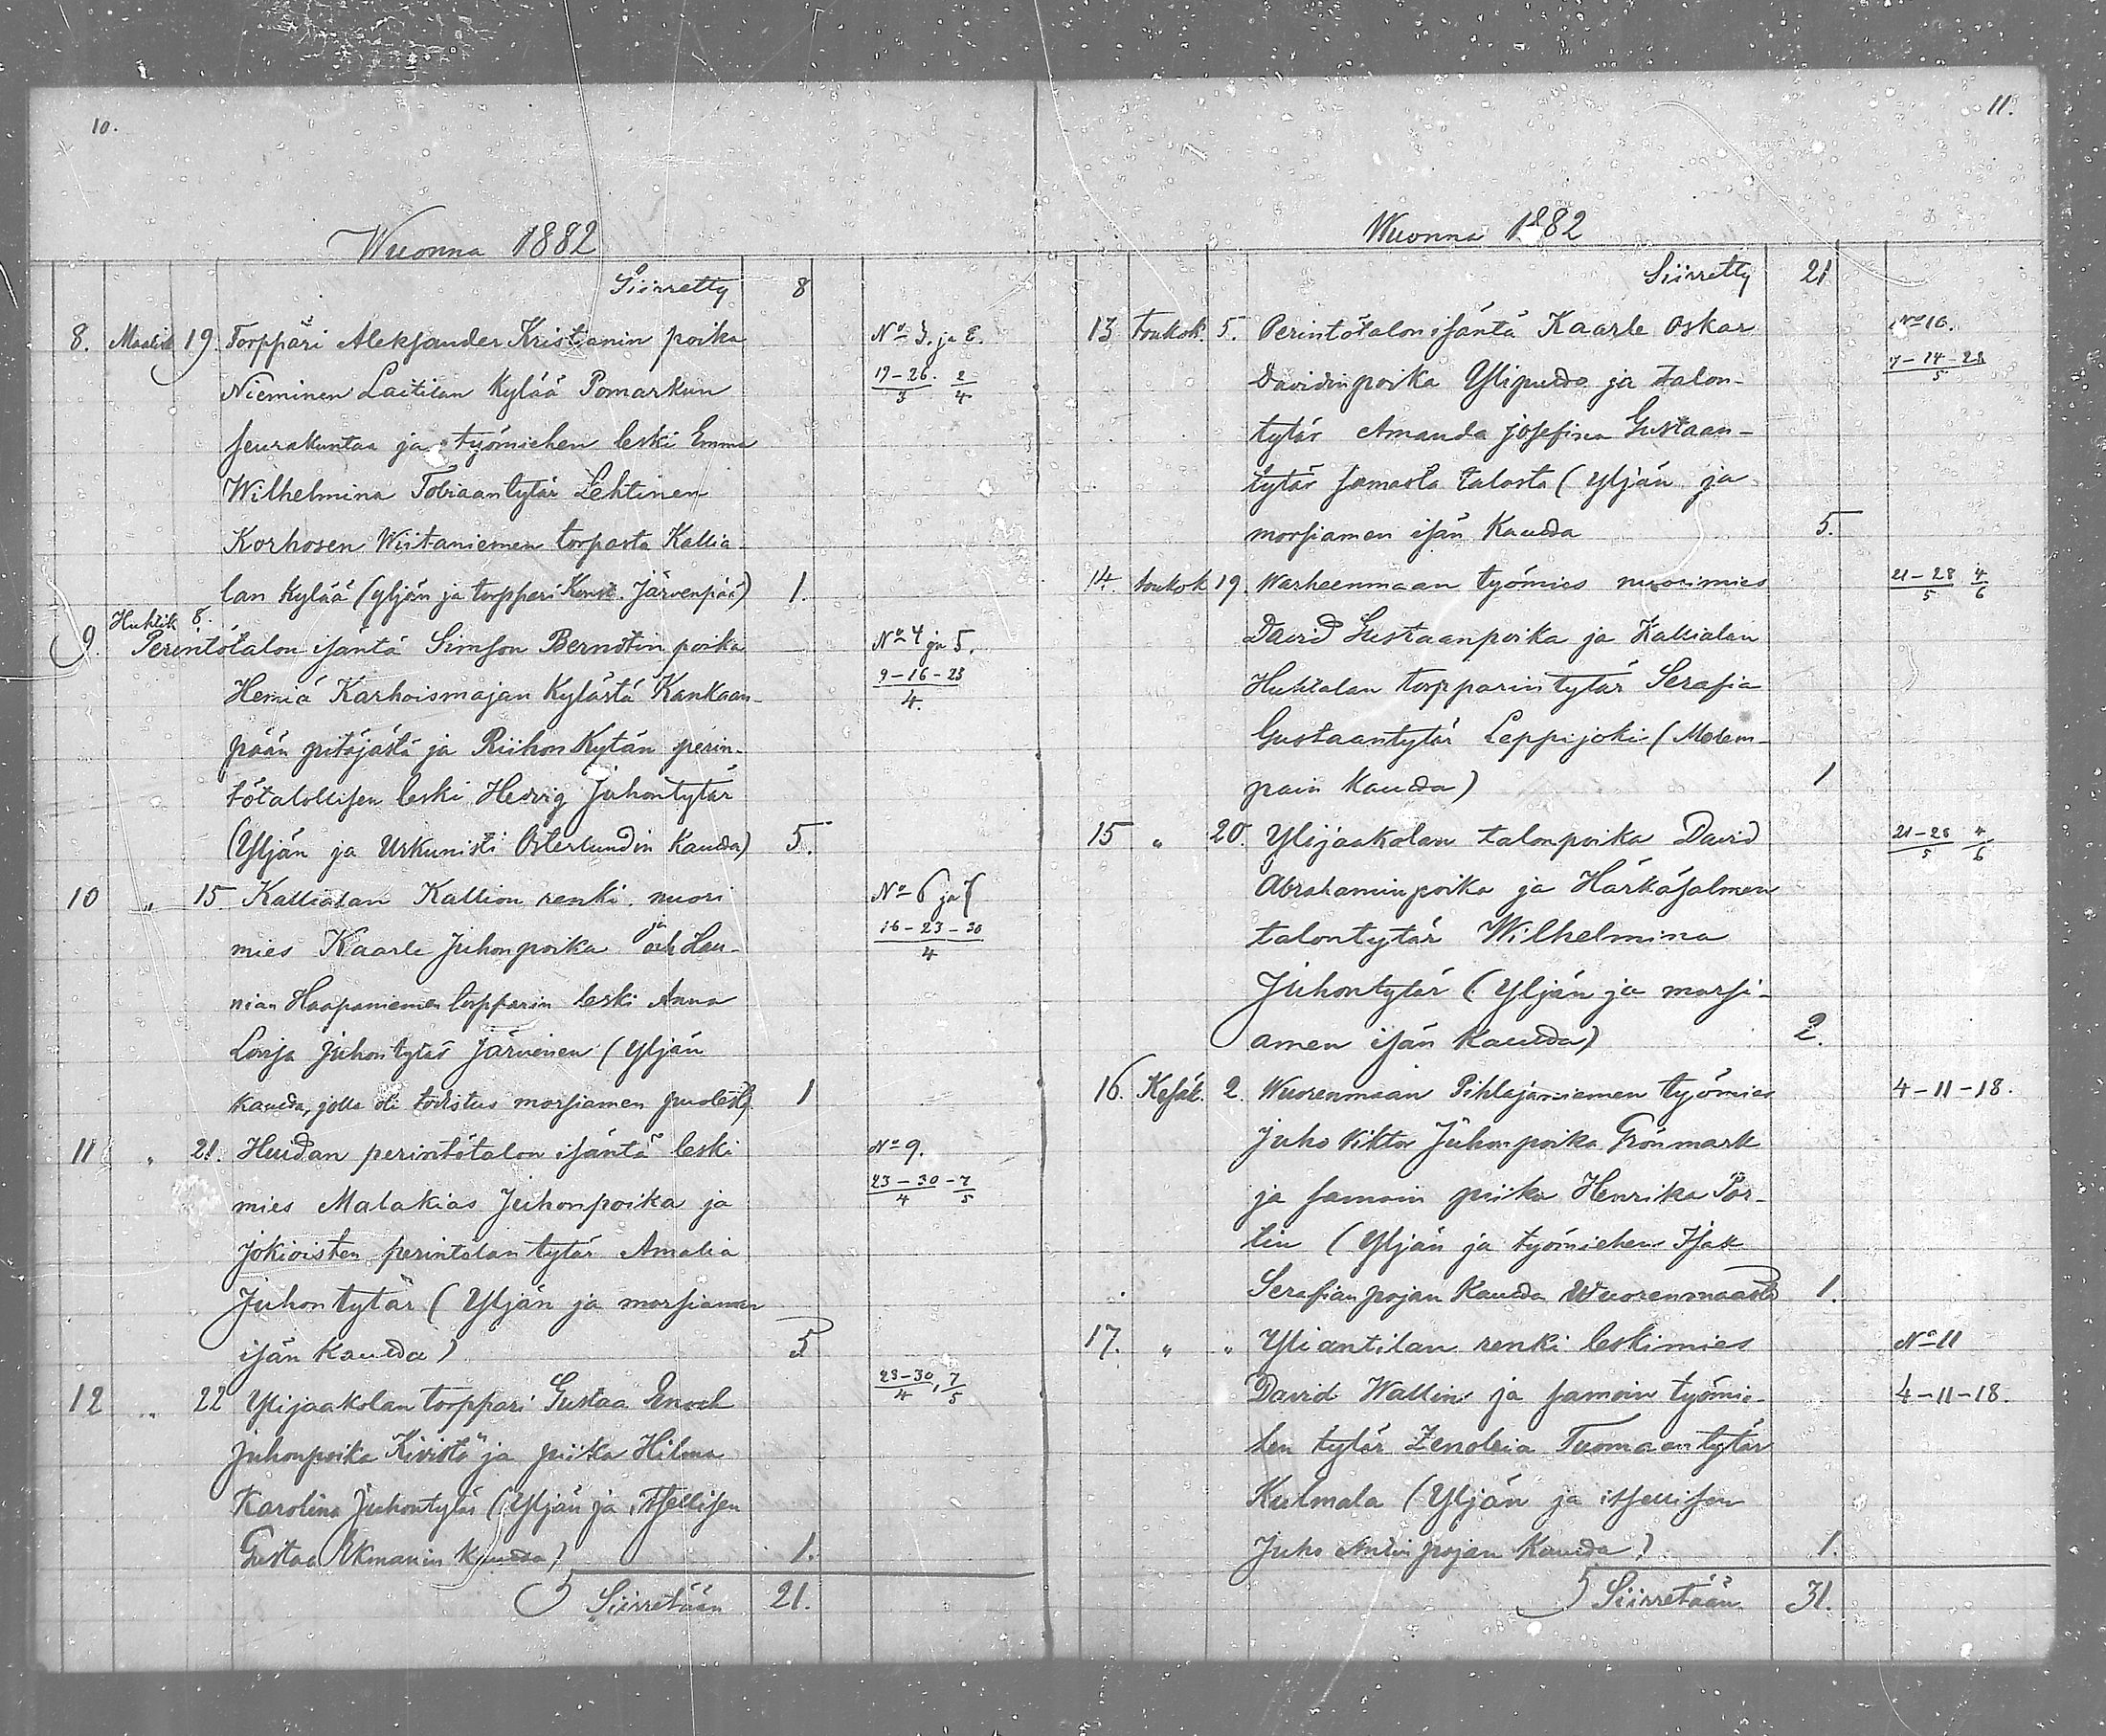 10.
Wuonna 1882
Siirretty 8
8. Maalisk 19. Torppari Aleksander Kristianin poika No 3. ja E.
Nieminen Laitilan kylää Pomarkun 19-26/3 2/4
seurakuntaa ja työmiehen leski Emma
Wilhelmina Tobiaantytär Lehtinen
Korhosen Wiitaniemen torpasta Kallia-
lan kylää (yljän ja torppari Konst. Järvenpää) 1.
Huhtik 8.
9. Perintötalon isäntä Simson Berndtin poika No 4 ja 5.
Hemiä Karhoismajan kylästä Kankaan- 9-16-23/4.
pään pitäjästä ja Riihon Kytän perin-
tötalollisen leski Hedvig Juhontytär
(Yljän ja Urkunisti Österlundin kautta) 5.
10 " 15 Kallialan Kallion renki nuori No 6 ja 7
mies Kaarle Juhonpoika ja och Hou- 16-23-30/4
nian Haapaniemen torpparin leski Anna
Lovisa Juhontytär Järvinen (Yljän
kautta, jolla oli todistus morsiamen puolesta) 1
11 " 21. Huidan perintötalon isäntä leski No 9.
mies Malakias Juhonpoika ja 23-30/4-7/5
Jokioisten perintalan tytär Amalia
Juhontytär (Yljän ja morsiamen
isän kautta) 5
12 " 22 Ylijaakolan torppari Gustaa Enoch 23-30/4, 7/5
Juhonpoika Kivistö ja piika Hilma
Karolina Juhontytär (Yljän ja itsellisen
Gustaa Ekmanin kautta) 1.
Siirretään 21.
11.
Wuonna 1882
Siirretty 21
13 Toukok. 5. Perintötalon isäntä Kaarle Oskar No 10.
Davidinpoika Ylipurdo ja talon- 7-14-21/5
tytär Amanda Josefina Gustaan-
tytär samasta talosta (Yljän ja
morsiamen isän kautta 5.
14. toukok 19. Warheenmaan työmies nuorimies 21-28/5 4/6
David Gustaanpoika ja Kallialan
Huhtalan torpparin tytär Serafia
Gustaantytär Leppijoki (Molem-
pain kautta) 1
15 " 20. Ylijaakolan talonpoika David 21-28/5 4/6
Abrahaminpoika ja Härkäsalmen
talontytär Wilhelmina
Juhontytär (Yljän ja morsi-
amen isän kautta) 2.
16. Kesäk. 2. Wuorenmaan Pihlajaniemen työmies 4-11-18.
Juho Viktor Juhonpoika Grönmark
ja samoin piika Henrika Por-
tin (Yljän ja työmiehen Isak
Serafian pojan kautta Wuorenmaasta 1.
17. " " Yliantilan renki leskimies No 11
David Wallin ja samoin työmie- 4-11-18.
hen tytär Zenobia Tuomaantytär
Kulmala (Yljän ja itsellisen
Juho Antin pojan kautta) 1.
Siirretään 31.